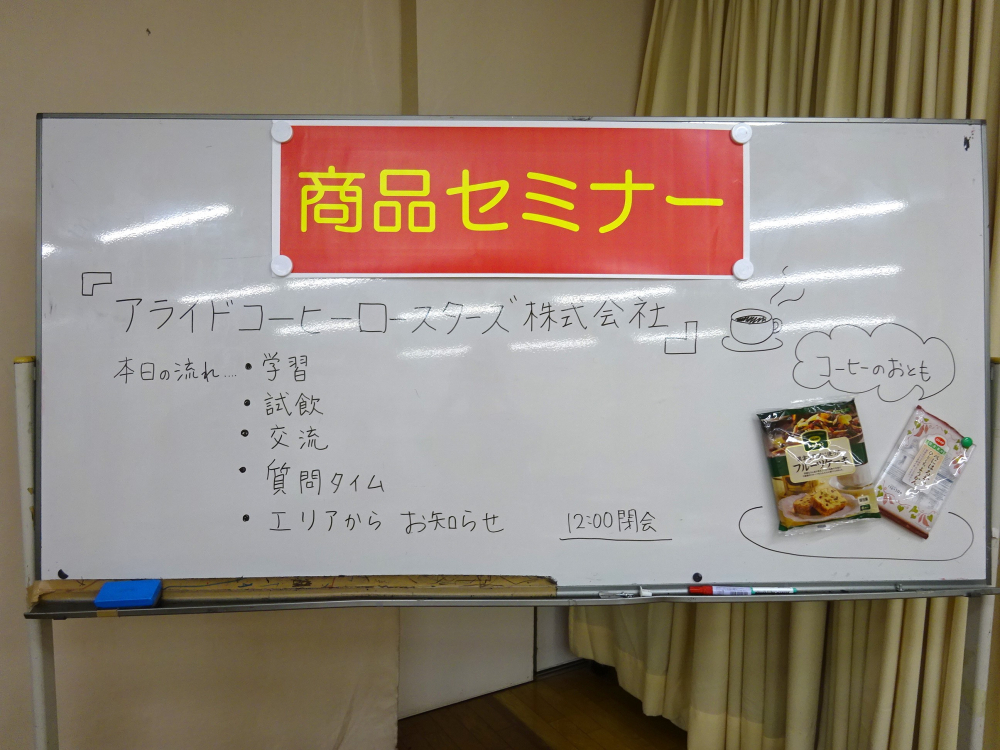 商品セミナー
『アライドコーヒーロースターズ株式会社』
本日の流れ....・学習
・試飲
・交流
・質問タイム
・エリアから お知らせ 12:00閉会
コーヒーのおとも
フルーツケーキ